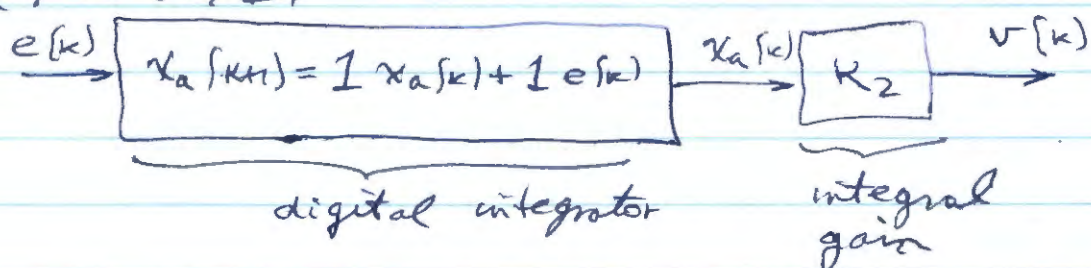 e[k] x_a[k+1] = 1 x_a[k] + 1 e[k] x_a[k] K_2 v[k]
digital integrator integral
gain